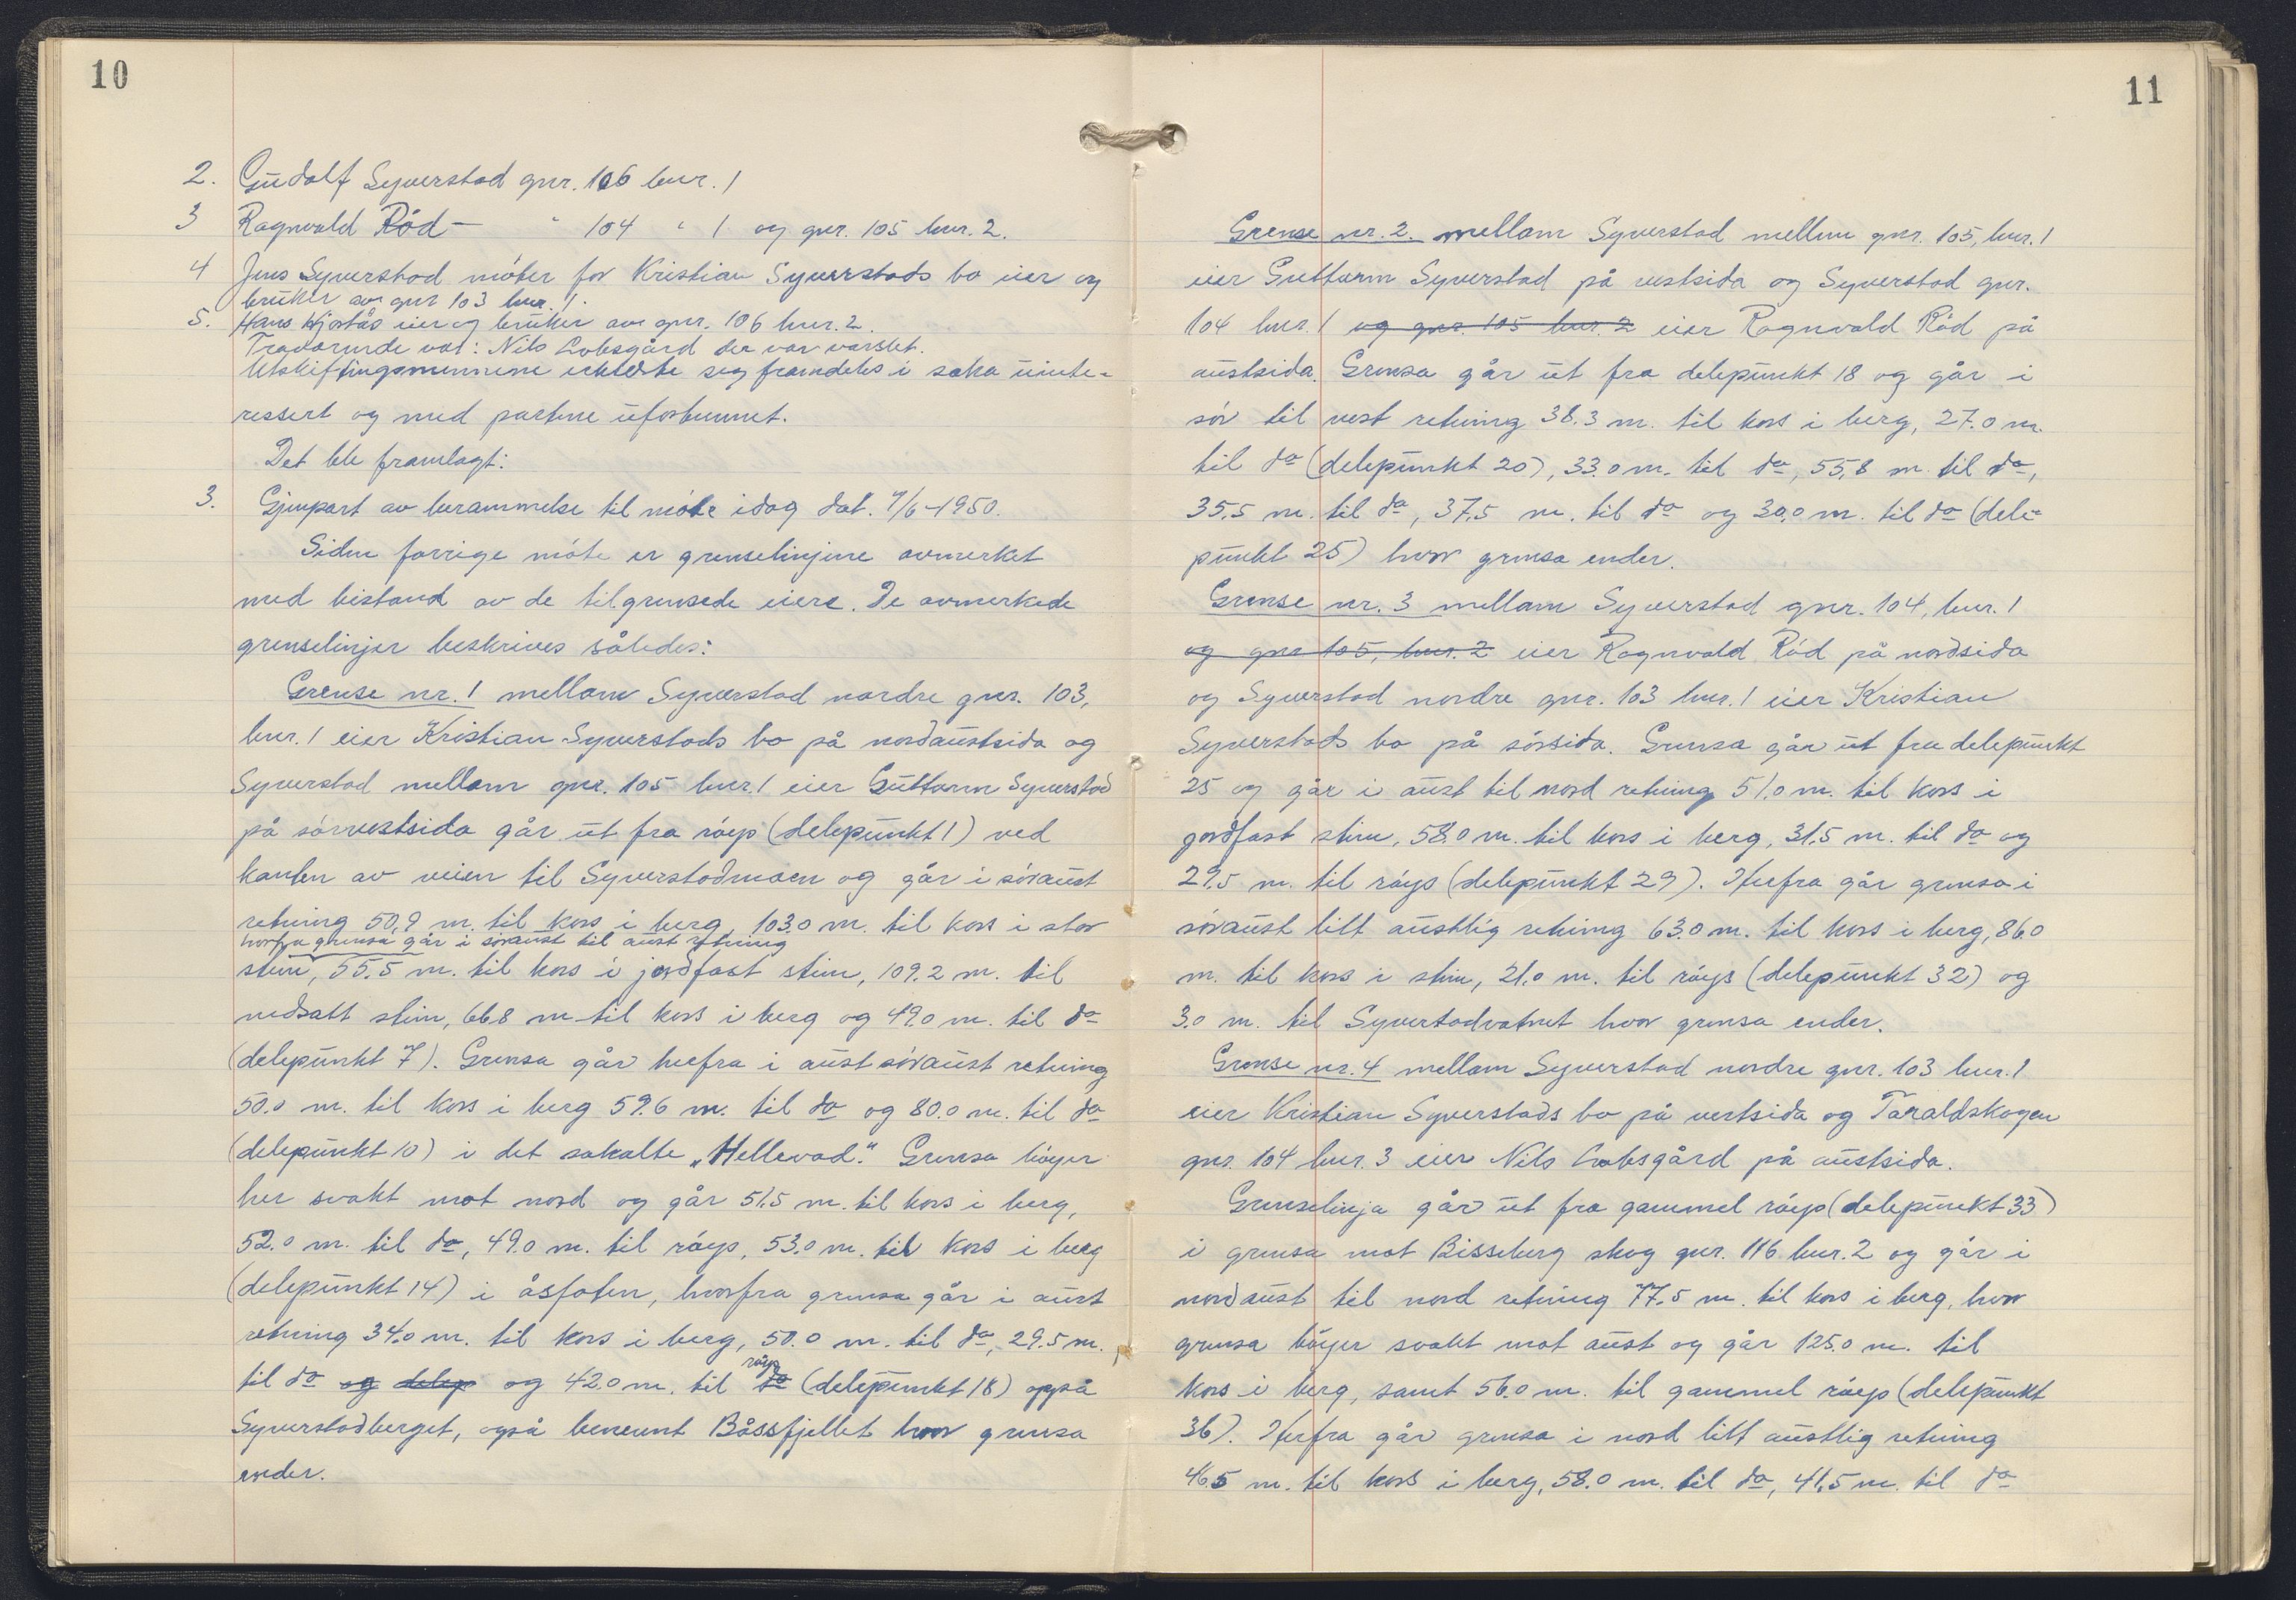 10
2. Gudolf Syverstad gnr. 106 bnr. 1
3 Ragnvald Röd — " 104 " 1 og gnr. 105 bnr. 2.
4 Jens Syverstad möter for Kristian Syverstads bo eier og
bruker av gnr 103 bnr. 1.
5. Hans Hjortås eier og bruker av gnr. 106 bnr. 2.
Fraværende var: Nils Lobsgård der var varslet.
Utskiftingsmennene erklærte seg framdeles i saka uinte-
ressert og med partene uforbunnet.
Det ble framlagt:
3. Gjenpart av berammelse til möte idag dat. 7/6-1950.
Siden forrige möte er grenselinjene avmerket
med bistand av de tilgrensede eiere. De avmerkede
grenselinjer beskrives således:
Grense nr. 1 mellom Syverstad nordre gnr. 103,
bnr. 1 eier Kristian Syverstads bo på nordaustsida og
Syverstad mellom gnr. 105 bnr. 1 eier Guttorm Syverstad
på sörvestsida går ut fra röys (delepunkt 1) ved
kanten av veien til Syverstadmoen og går i söraust
retning 50,9 m. til kors i berg, 103.0 m. til kors i stor
horfra grensa går i söraust til aust retning
stein, 55.5 m. til kors i jordfast stein, 109.2 m. til
nedsatt stein, 66.8 m til kors i berg og 49.0 m. til do
(delepunkt 7). Grensa går herfra i aust söraust retning
50.0 m. til kors i berg 59.6 m. til do og 80.0 m. til do
(delepunkt 10) i det sakalte „Hellevad". Grensa böyer
her svakt mot nord og går 51.5 m. til kors i berg,
52.0 m. til do, 49.0 m. til röys, 53.0 m. til kors i berg
(delepunkt 14) i åsfoten, hvorfra grensa går i aust
retning 34.0 m. til kors i berg, 50.0 m. til do, 29.5 m.,
röys
til do og delep og 42.0 m. til do (delepunkt 18) oppå
Syverstadberget, også benevnt Båssfjellet hvor grensa
ender.
11
Grense nr. 2. mellom Syverstad mellem gnr. 105, bnr. 1
eier Guttorm Syverstad på vestsida og Syverstad gnr.
104 bnr. 1 og gnr. 105 bnr. 2 eier Ragnvald Röd på
austsida. Grensa går ut fra delepunkt 18 og går i
sör til vest retning 38.3 m. til kors i berg, 27.0 m.
til do (delepunkt 20), 33.0 m. til do, 55,8 m. til do,
35.5 m. til do, 37.5 m. til do og 30.0 m. til do (dele-
punkt 25) hvor grensa ender.
Grense nr. 3 mellom Syverstad gnr. 104, bnr. 1
og gnr 105, bnr. 2 eier Ragnvald Röd på nordsida
og Syverstad nordre gnr. 103 bnr. 1 eier Kristian
Syverstads bo på sörsida. Grensa går ut fra delepunkt
25 og går i aust til nord retning 51.0 m. til kors i
jordfast stein, 58.0 m. til kors i berg, 31.5 m. til do og
29.5 m. til röys (delepunkt 29). Herfra går grensa i
söraust litt austlig retning 63.0 m. til kors i berg, 86.0
m. til kors i stein, 21.0 m. til röys (delepunkt 32) og
3.0 m. til Syverstadvatnet hvor grensa ender.
Grense nr. 4 mellom Syverstad nordre gnr. 103 bnr. 1
eier Kristian Syverstads bo på vestsida og Taraldskogen
gnr. 104 bnr. 3 eier Nils Lobsgård på austsida.
Grenselinja går ut fra gammel röys (delepunkt 33)
i grensa mot Bisseberg skog gnr. 116 bnr. 2 og går i
nordaust til nord retning 77.5 m. til kors i berg, hvor
grensa böyer svakt mot aust og går 125.0 m. til
kors i berg, samt 56.0 m. til gammel röys (delepunkt
36). Herfra går grensa i nord litt austlig retning
46.5 m. til kors i berg, 58.0 m. til do, 41.5 m. til do